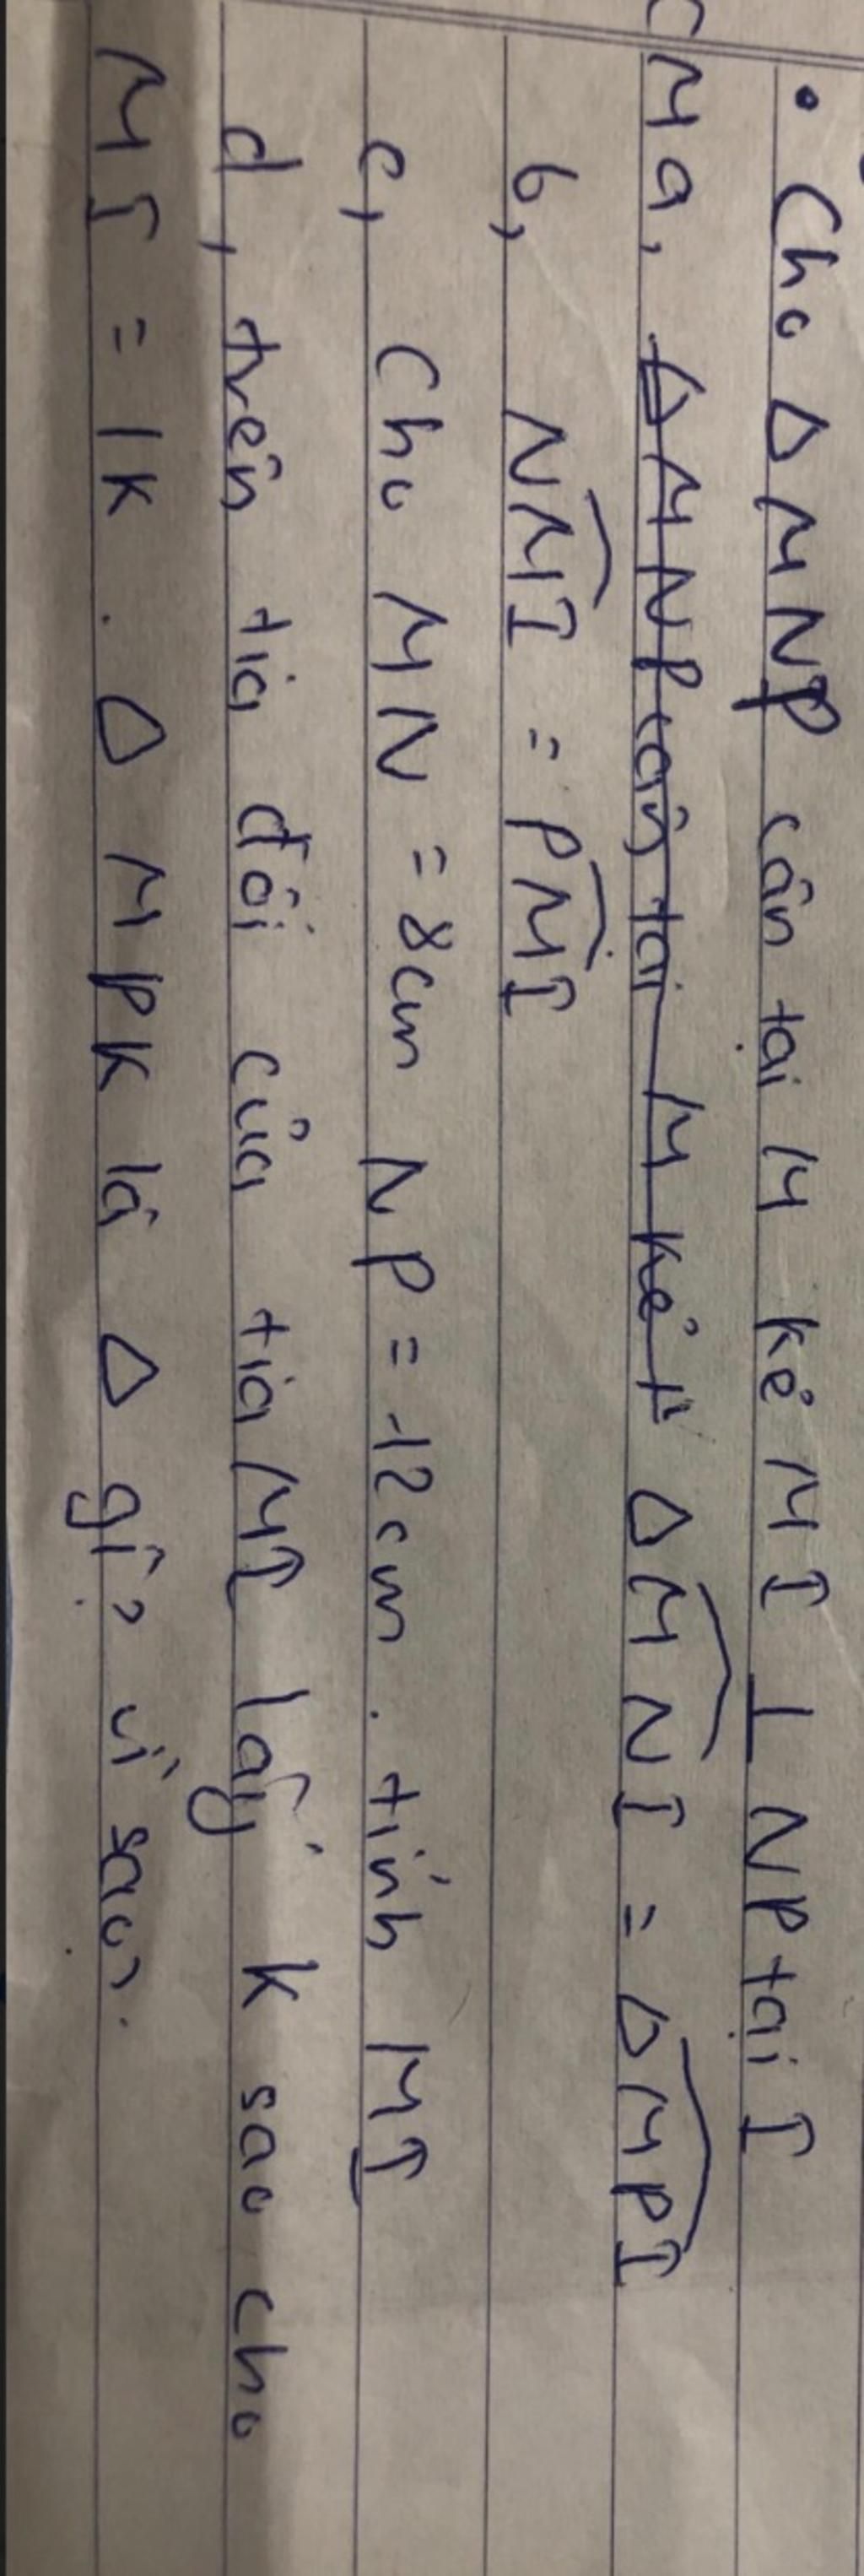 • Cho Δ MNP cân tại M kẻ MI ⊥ NP tại I
CM a, ΔMNP cân tại M kẻ Δ MNI = Δ MPI
b, NMI = PMI
c, Cho MN = 8cm NP = 12cm. tính MI
d, trên tia đối của tia MI lấy K sao cho
MI = IK. Δ MPK là Δ gì? vì sao?